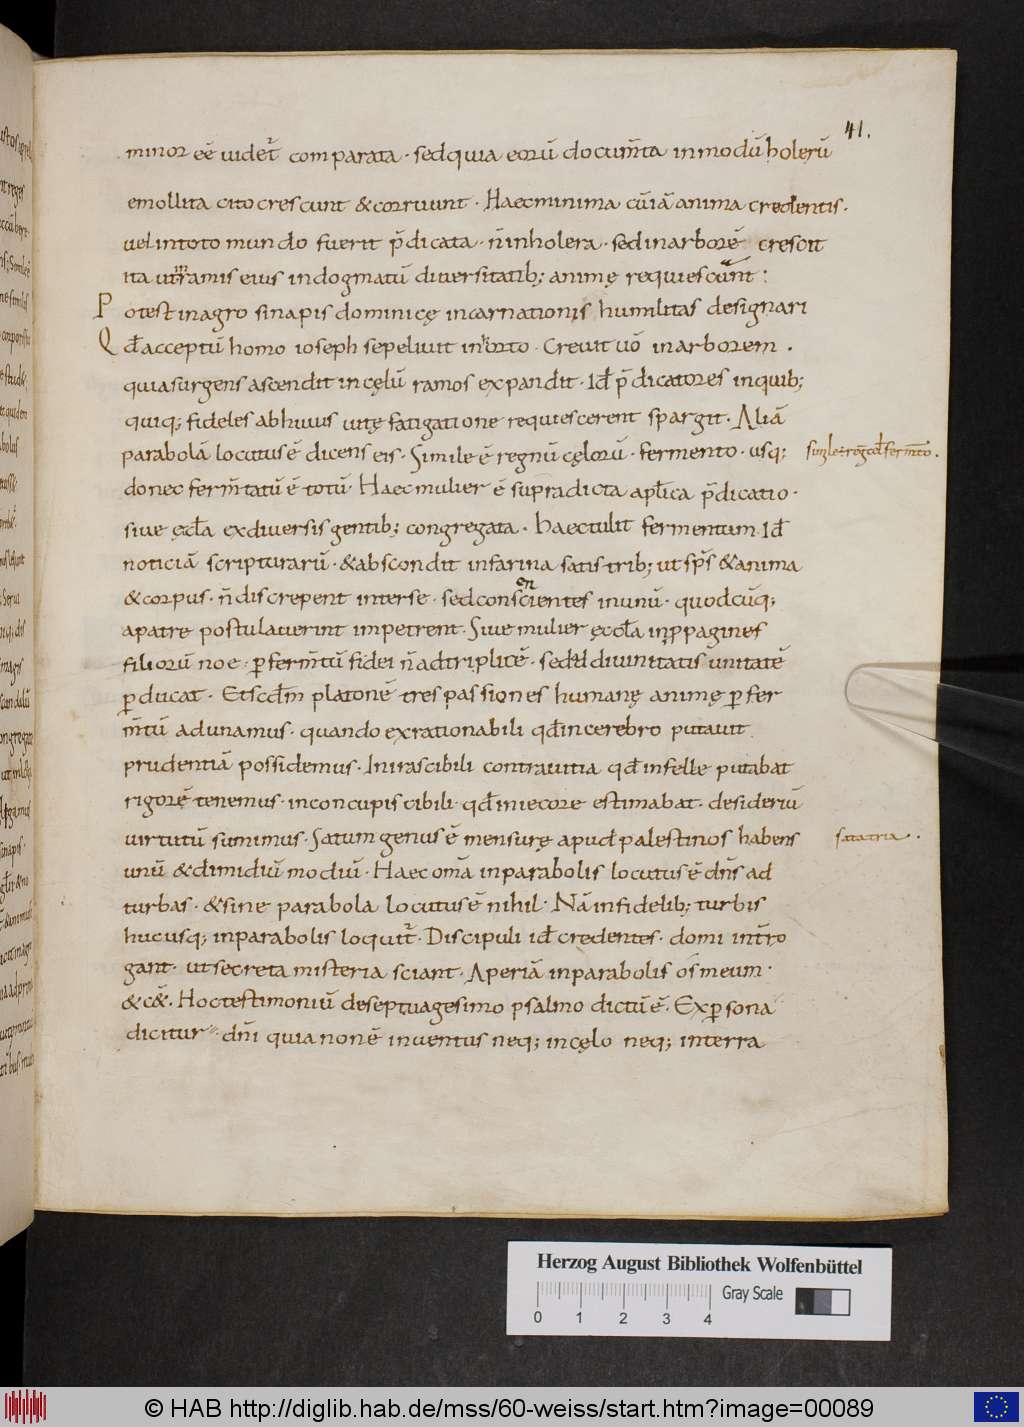 41.
minor eē uidet̄ comparata · sed quia eorū documm̄ta inmodū holerū
emollita cito crescunt & corruunt · Haec minima cū iā anima credentis ·
uel intoto mundo fuerit p̄dicata · n̄ inholera · sed inarborē crescit
ita ut ramis eius indogmatū diuersitatib; animę requiescunt :
Potest inagro sinapis dominicę incarnationis humilitas designari
Qđ acceptū homo ioseph sepeliuit inhorto · Creuit uō inarborem ·
quia surgens ascendit incęlū ramos expandit · Iđ p̄dicatores inquib;
quiq; fideles abhuius uitę fatigatione requiescerent spargit · Aliā
parabolā locutus ē dicens eis · Simile ē regnū cęlorū · fermento · usq;
donec ferm̄tatū ē totū · Haec mulier ē supradicta apłica p̄dicatio ·
siue ęcła exdiuersis gentib; congregata · haec tulit fermentum · Iđ
noticiā scripturarū · & abscondit infarina satis trib; ut sp̄s & anima
& corpus · n̄ discrepent interse · sed conscientes inunū · quodcūq;
en
apatre postulauerint impetrent · Siue mulier ęccła inppagines
filiorū noe · ꝑ ferm̄tū fidei n̄ adtriplicē · sed ad diuinitatis unitatē
ꝑducat · Et scdm̄ platonē tres passiones humanę animę ꝑ fer
m̄tū adunamus · quando exrationabili qđ incerebro putauit
prudentiā possidemus · In irascibili contra uitia qđ infelle putabat
rigorē tenemus · inconcupiscibili · qđ iniecore estimabat · desideriū
uirtutū sumimus · Satum genus ē mensurę apud palestinos habens
unū & dimidiū modiū · Haec om̄a inparabolis locutus ē dn̄s ad
turbas · & sine parabola locutus ē nihil · Nā infidelib; turbis
hucusq; inparabolis loquit̄ · Discipuli iđ credentes · domi int̄ro
gant · ut secreta misteria sciant · Aperiā inparabolis os meum ·
& c&̄ · Hoc testimoniū de septuagesimo psalmo dictū ē · Ex ꝑsona
dicitur · dn̄i quia non ē inuentus neq; incęlo neq; interra
sata tria ·
Herzog August Bibliothek Wolfenbüttel
Gray Scale
0 1 2 3 4
© HAB http://diglib.hab.de/mss/60-weiss/start.htm?image=00089